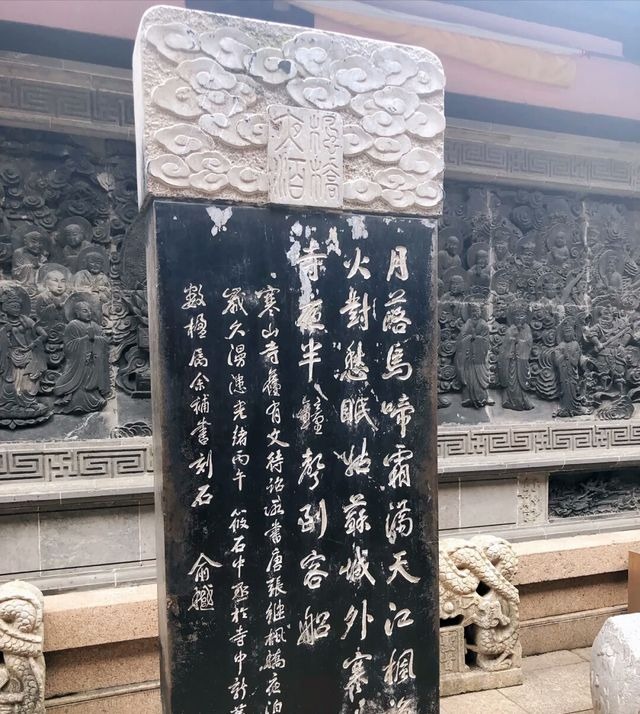 楓橋
夜泊
月落烏啼霜滿天江楓漁
火對愁眠姑蘇城外寒
寺夜半鐘聲到客船
寒山寺舊有文待詔所書唐張繼楓橋夜泊
歲久漫漶光緒丙午 筱石中丞於寺中新葺
數楹屬余補書刻石 俞樾